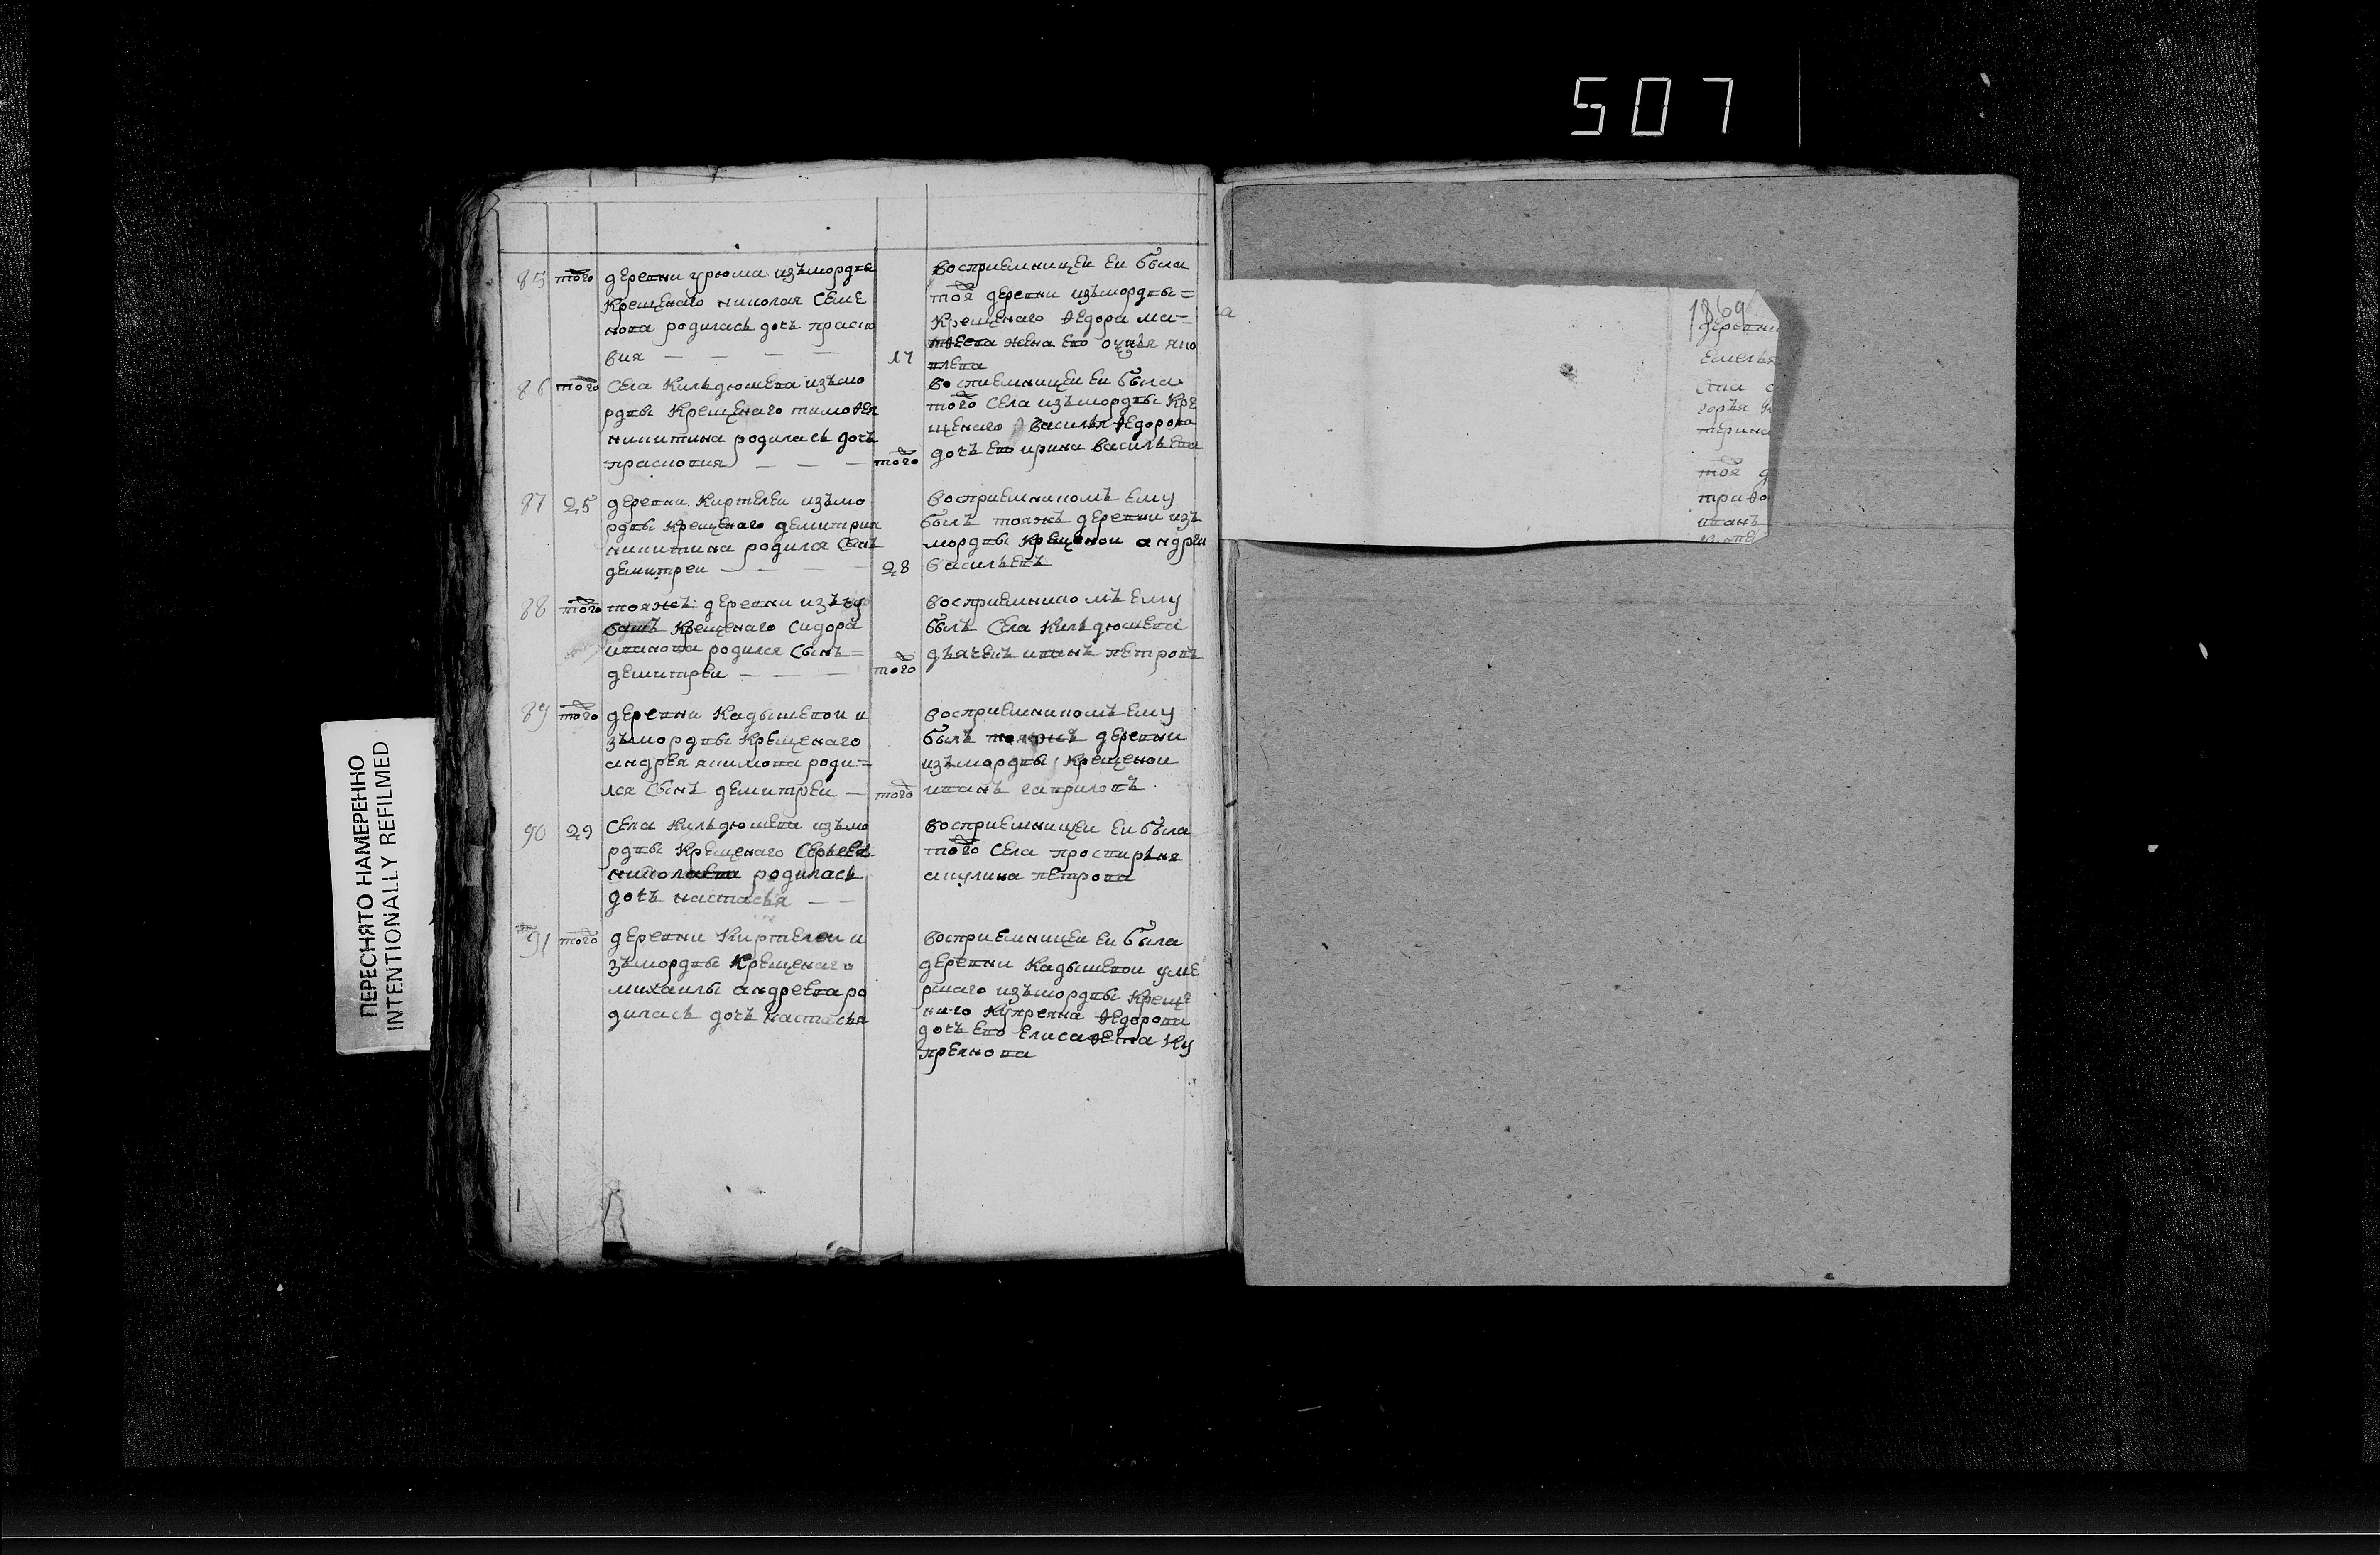 507
85 того деревни урюма изъмордвы
крещенаго николая семе
нова родилась дочь праско
вия
17
восприемницеи еи была
тоя деревни изъмордвы=
крещенаго ѳедора ма=
твеева жена ево
86 того села Кильдюшева изъмо
рдвы крещенаго тимоѳея
никитина родилась дочь
прасковия
того
восприемницеи еи была
того села изъмордвы кре
щенаго василья ѳедорова
дочь ево ирина васильева
87 25 деревни Киртелеи изъмо
рдвы крещенаго демитрия
никитина родился сынъ
демитреи
28
восприемникомъ ему
былъ тояжъ деревни изъ
мордвы крещенои андреи
васильевъ
88 того тояжъ деревни изъчу
вашъ крещенаго сидора
иванова родился сынъ=
демитреи
того
восприемникомъ ему
былъ села Кильдюшева
дьячекъ иванъ петровъ
89 того деревни Кадышевои и
зъмордвы крещенаго
андрея якимова роди=
лся сынъ демитреи
того
восприемникомъ ему
былъ тояжъ деревни
изъмордвы крещенои
иванъ гавриловъ
90 29 села Кильдюшева изъмо
рдвы крещенаго сергея
николаева родилась
дочь настасья
восприемницеи еи была
того села просвирня
акулина петрова
91 того деревни Киртелеи и
зъмордвы крещенаго
михаилы андреева ро
дилась дочь настасья
восприемницеи еи была
деревни Кадышевои уме
ршаго изъмордвы креще
наго Куприяна ѳедорова
дочь ево елисавета Ку
преянова
ПЕРЕСНЯТО НАМЕРЕННО
INTENTIONALLY REFILMED
ва
1869
деревни
емелья
терина
тоя д
триѳо
иванъ